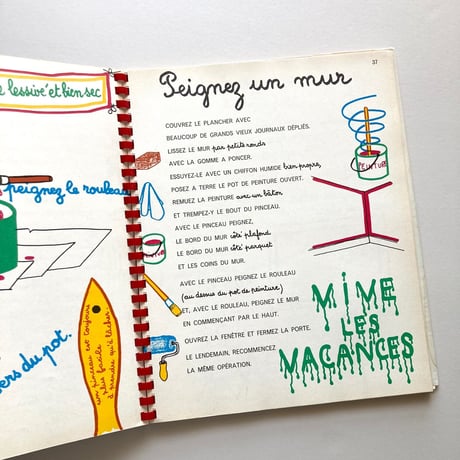 e lessivé et bien sec
peignez le rouleau
ers du pot.
un pinceau est toujours
plus facile
à prendre qu'à lâcher
37
Peignez un mur
COUVREZ LE PLANCHER AVEC
BEAUCOUP DE GRANDS VIEUX JOURNAUX DÉPLIÉS.
LISSEZ LE MUR par petits ronds
AVEC LA GOMME A PONCER.
ESSUYEZ-LE AVEC UN CHIFFON HUMIDE bien propre,
POSEZ A TERRE LE POT DE PEINTURE OUVERT.
REMUEZ LA PEINTURE avec un bâton
ET TREMPEZ-Y LE BOUT DU PINCEAU.
AVEC LE PINCEAU PEIGNEZ,
LE BORD DU MUR côté plafond
LE BORD DU MUR côté parquet
ET LES COINS DU MUR.
AVEC LE PINCEAU PEIGNEZ LE ROULEAU
(au dessus du pot de peinture)
ET, AVEC LE ROULEAU, PEIGNEZ LE MUR
EN COMMENCANT PAR LE HAUT.
OUVREZ LA FENÊTRE ET FERMEZ LA PORTE.
LE LENDEMAIN, RECOMMENCEZ
LA MÊME OPÉRATION.
PEINTURE
MIME
LES
VACANCES